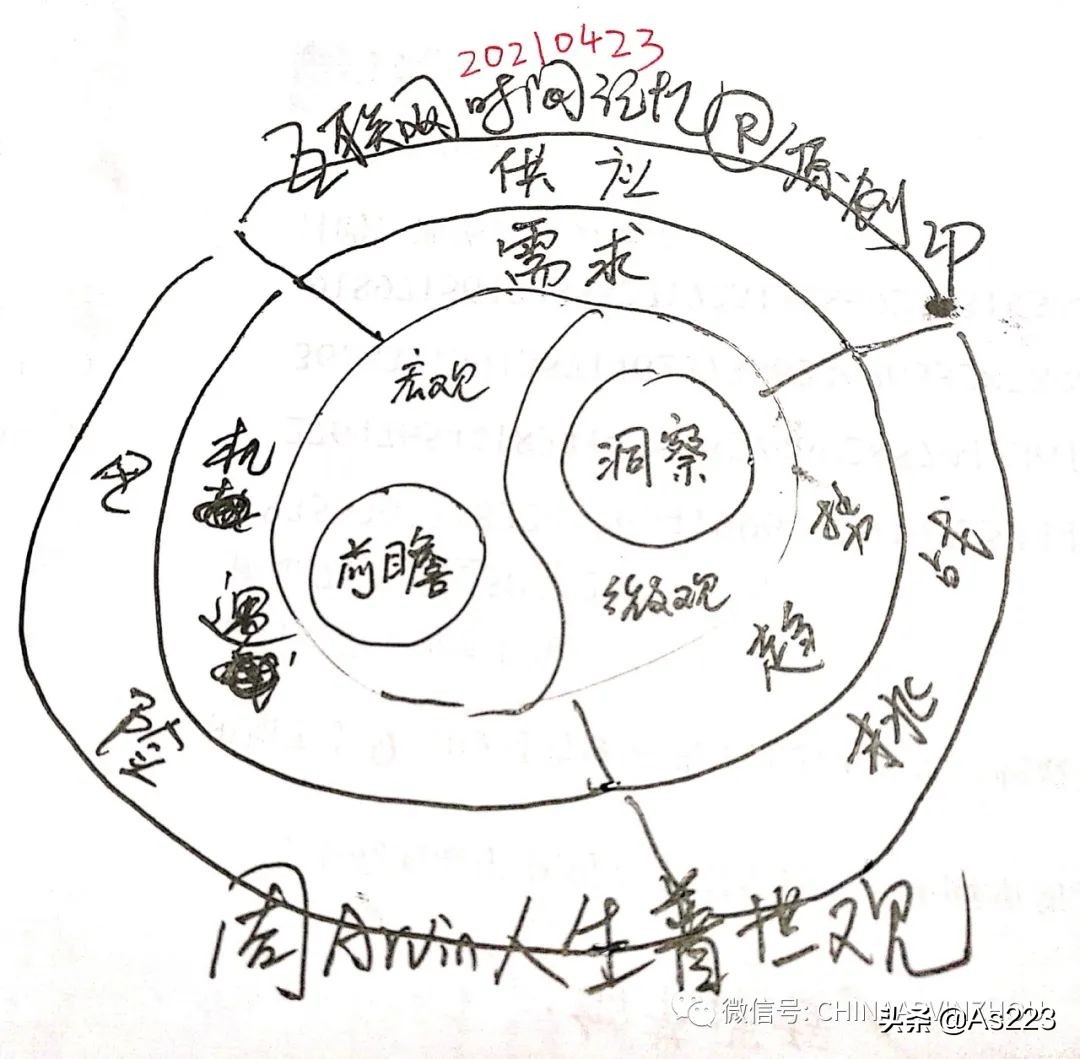 20210423
互联网时间记忆®原创IP
供应
需求
宏观
洞察
机遇
前瞻
微观
趋势
挑战
危险
周Arvin人生普世观
微信号: CHINAARVINZHOU
头条 @As223